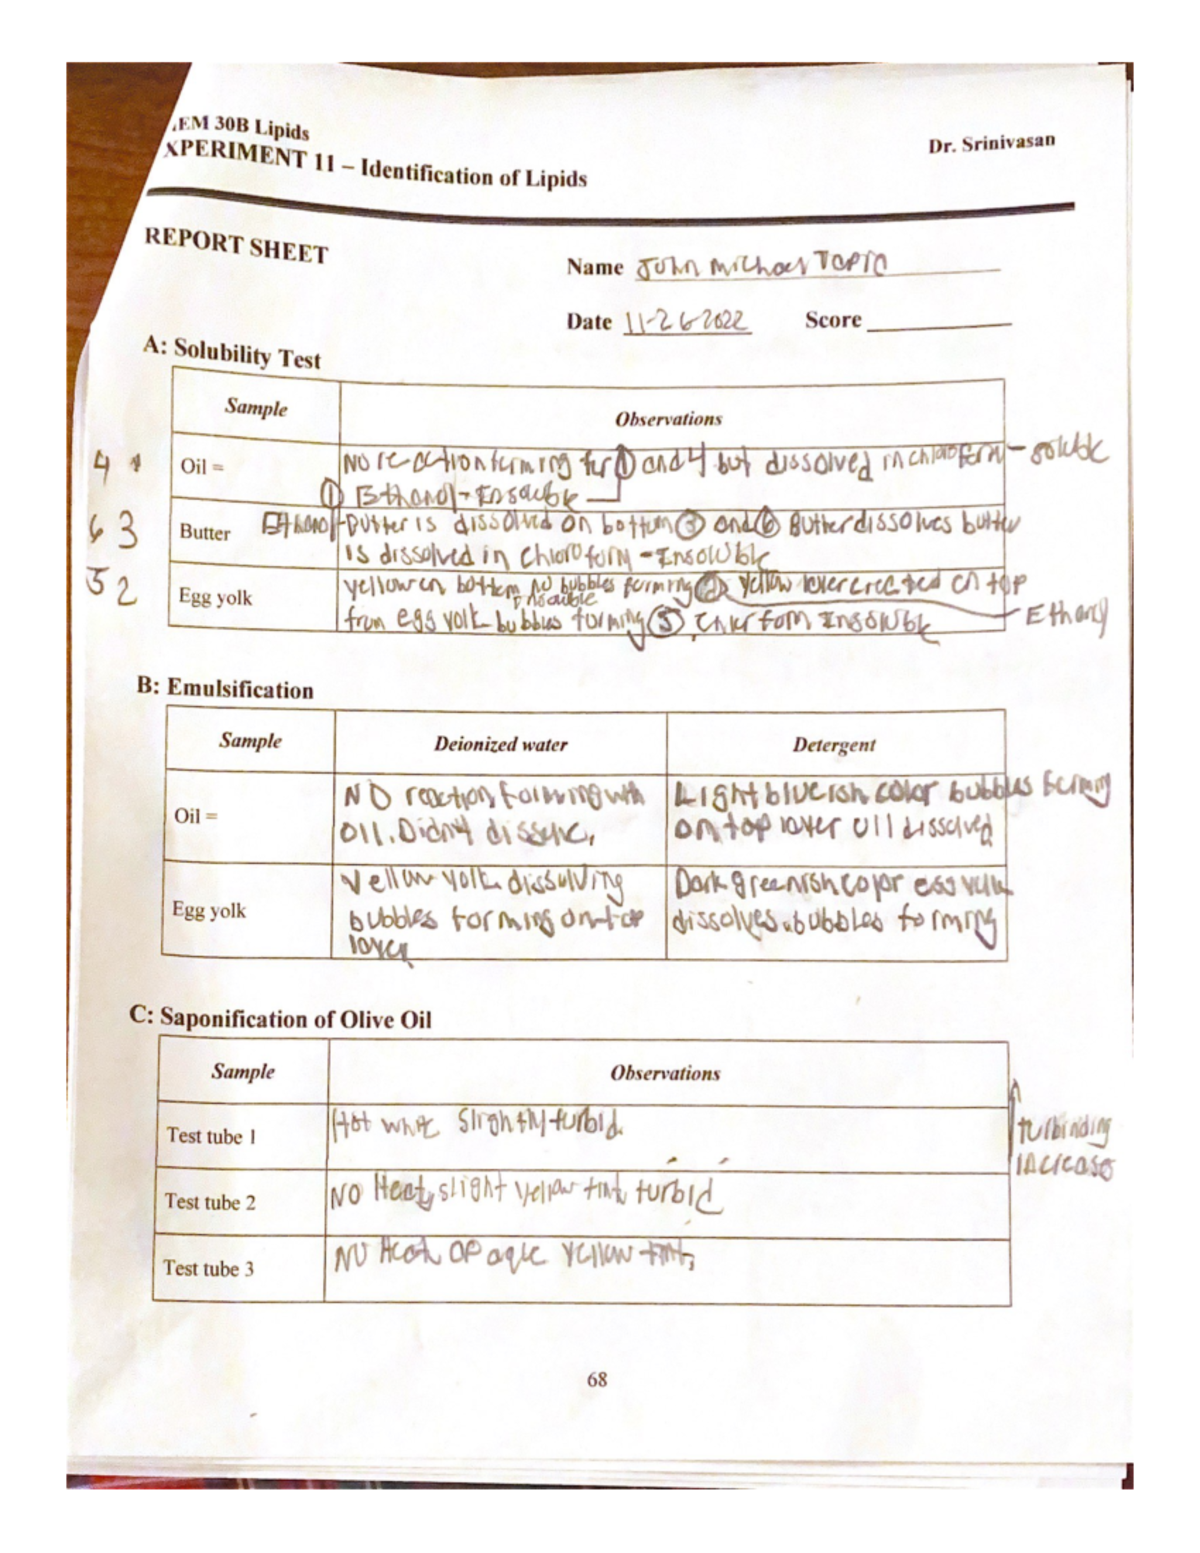 .EM 30B Lipids
Dr. Srinivasan
XPERIMENT 11 – Identification of Lipids
REPORT SHEET
Name John Michael Tapia
Date 11-26-2022 Score
A: Solubility Test
Sample Observations
4 1 Oil = No reaction forming for ① and 4 but dissolved in chloroform - soluble
① Ethanol - Insoluble
6 3 Butter Ethanol - Butter is dissolved on bottom ③ and ⑥ Butter dissolves butter
is dissolved in chloroform - Insoluble
5 2 Egg yolk yellow on bottom no bubbles forming ② yellow layer created on top
Insoluble
from egg yolk bubbles forming ⑤ Insoluble
B: Emulsification
Sample Deionized water Detergent
Oil = NO reaction forming with Light blueish color bubbles forming
oil. Didn't on top layer oil dissolved
Egg yolk Yellow yolk dissolving Dark greenish color egg yolk
bubbles forming on top dissolves. bubbles forming
layer
C: Saponification of Olive Oil
Sample Observations
Test tube 1 Hot Slightly turbid.
increase
Test tube 2 NO Heat, slight yellow tint, turbid
Test tube 3 NO Heat yellow tint,
68